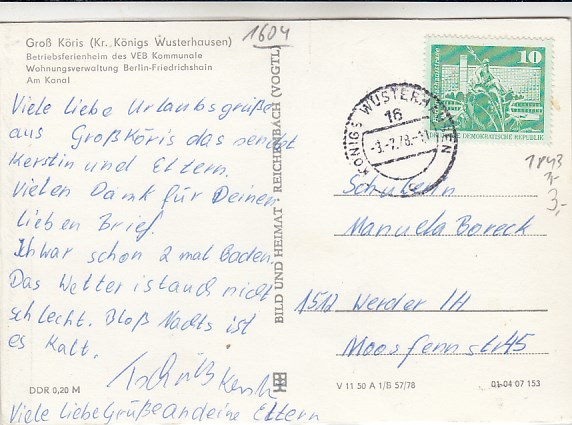 1604
Groß Köris (Kr. Königs Wusterhausen)
Betriebsferienheim des VEB Kommunale
Wohnungsverwaltung Berlin-Friedrichshain
Am Kanal
Viele liebe Urlaubsgrüße
aus Großköris das sendet
Kerstin und Eltern.
Vielen Dank für Deinen
lieben Brief.
Ich war schon 2 mal Baden.
Das Wetter ist auch nicht
schlecht. Bloß Nachts ist
es Kalt.
Tschüß Kerstin
Viele Liebe Grüße an deine Eltern
DDR 0,20 M
BILD UND HEIMAT REICHENBACH (VOGTL)
10
DEMOKRATISCHE REPUBLIK
KÖNIGS WUSTERHAUSEN
16
c
3,-
Schülerin
Manuela Boreck
1512 Werder /H
Moosfennstr 45
V 11 50 A 1/B 57/78
01-04 07 153